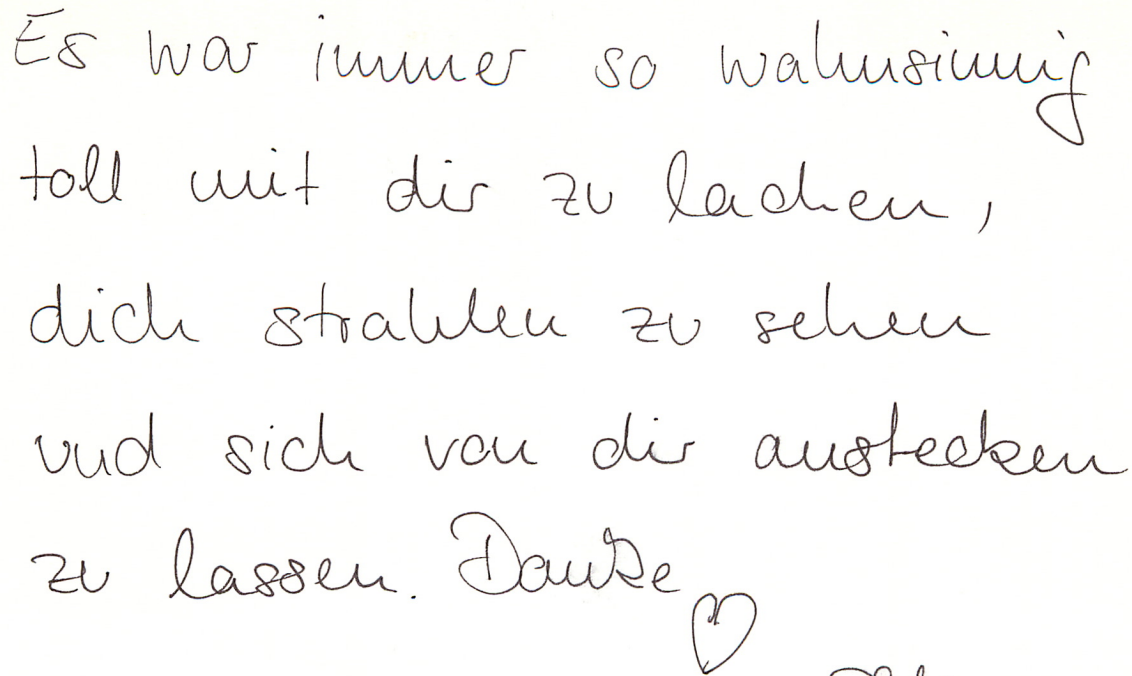 Es war immer so wahnsinnig
toll mit dir zu lachen,
dich strahlen zu sehen
und sich von dir anstecken
zu lassen. Danke ♡